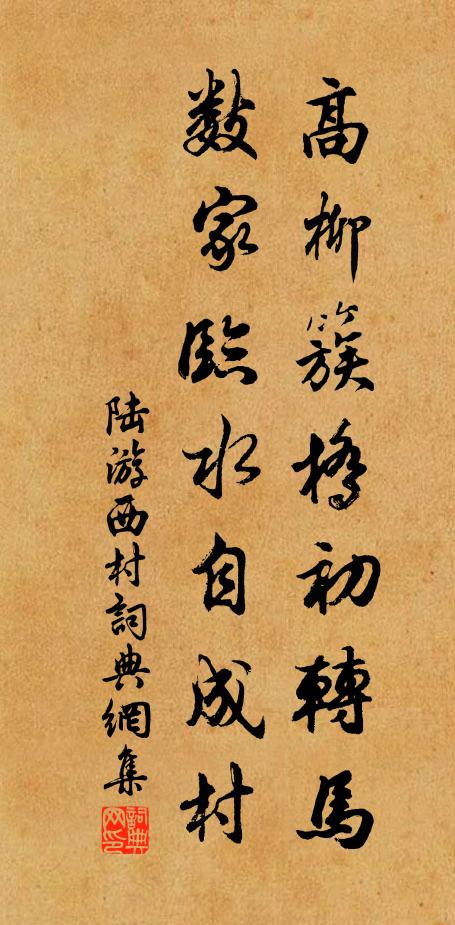 高柳簇橋初轉馬
數家臨水自成村
陸游西村詞典網集
詞典网印